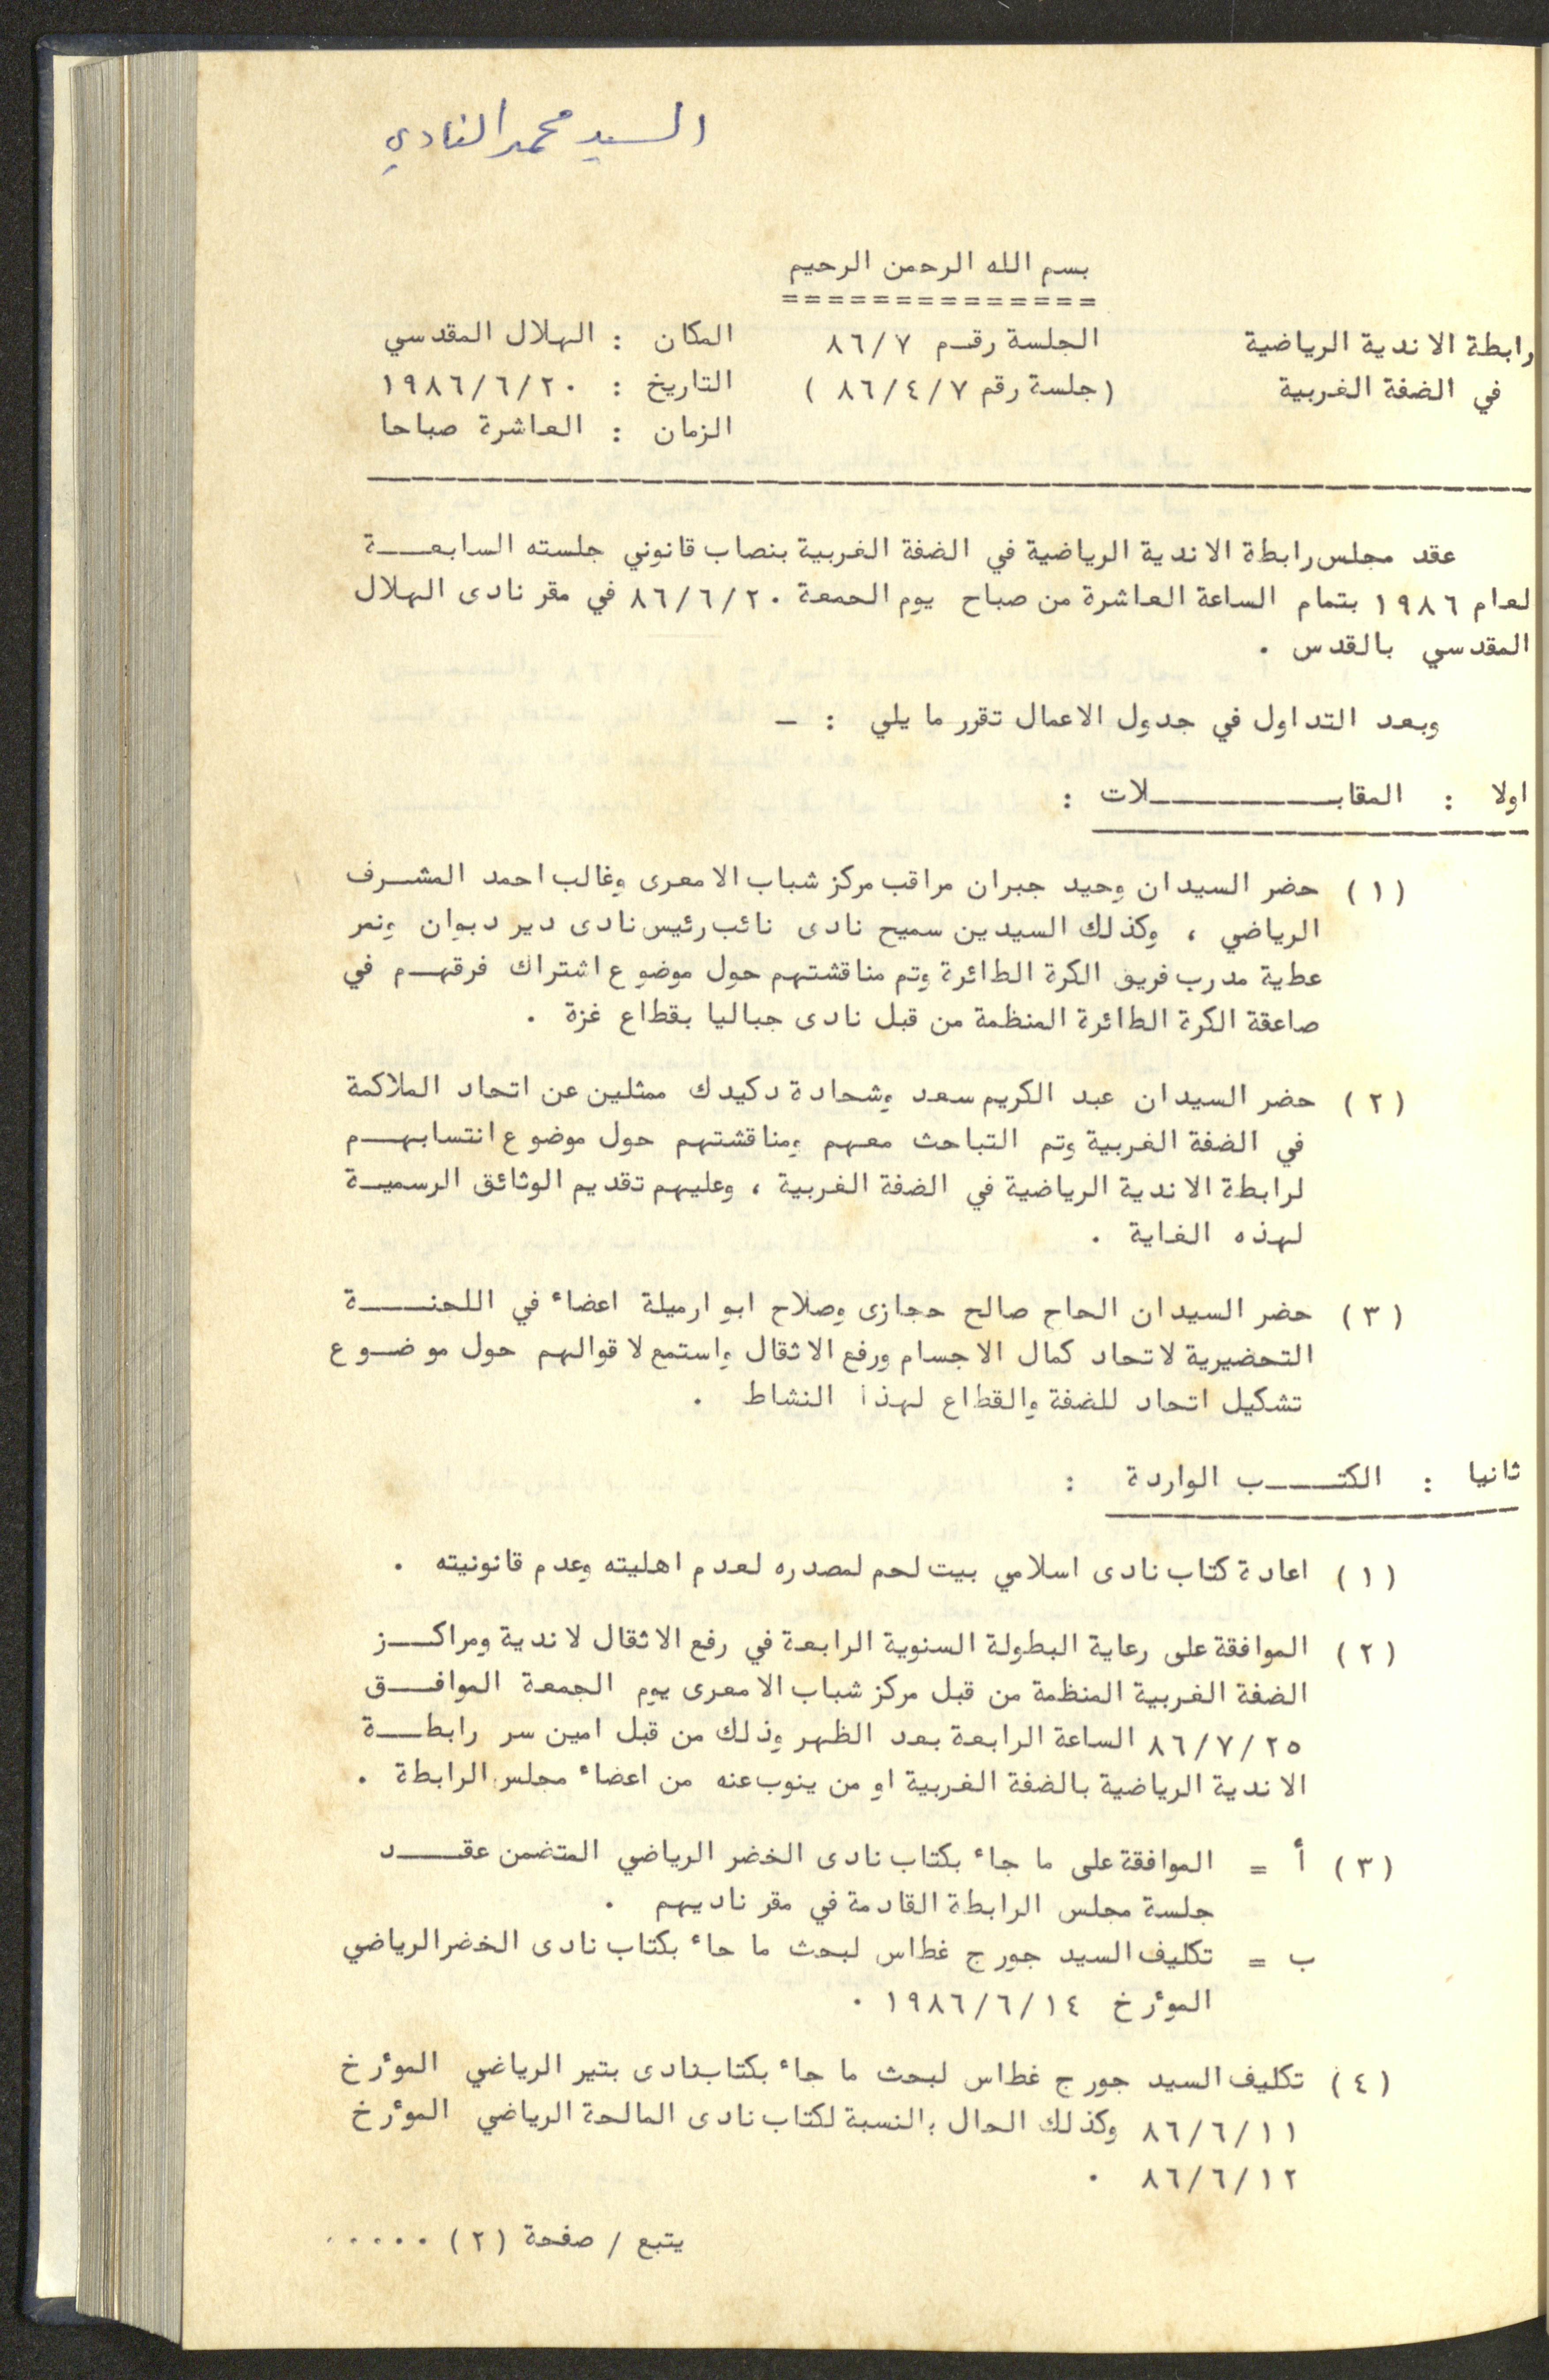 السيد محمد النادي
بسم الله الرحمن الرحيم
==============
رابطة الاندية الرياضية الجلسة رقم ٨٦/٧ المكان : الهلال المقدسي
في الضفة الغربية (جلسة رقم ٨٦/٤/٧ ) التاريخ : ١٩٨٦/٦/٢٠
الزمان : العاشرة صباحا
عقد مجلس رابطة الاندية الرياضية في الضفة الغربية بنصاب قانوني جلسته السابعـــة
لعام ١٩٨٦ بتمام الساعة العاشرة من صباح يوم الجمعة ٨٦/٦/٢٠ في مقر نادى الهلال
المقدسي بالقدس .
وبعد التداول في جدول الاعمال تقرر ما يلي : ـ
اولا : المقابـــــــــــلات :
(١) حضر السيدان وحيد جبران مراقب مركز شباب الامعرى وغالب احمد المشــرف
الرياضي ، وكذلك السيدين سميح نادى نائب رئيس نادى دير دبوان ونمر
عطية مدرب فريق الكرة الطائرة وتم مناقشتهم حول موضوع اشتراك فرقهــم في
صاعقة الكرة الطائرة المنظمة من قبل نادى جباليا بقطاع غزة .
(٢) حضر السيدان عبد الكريم سعد وشحادة دكيدك ممثلين عن اتحاد الملاكمة
في الضفة الغربية وتم التباحث معهم ومناقشتهم حول موضوع انتسابهــم
لرابطة الاندية الرياضية في الضفة الغربية ، وعليهم تقديم الوثائق الرسميــة
لهذه الغاية .
(٣) حضر السيدان الحاج صالح حجازى وصلاح ابو ارميلة اعضاء في اللجنـــــة
التحضيرية لاتحاد كمال الاجسام ورفع الاثقال واستمع لاقوالهم حول موضــوع
تشكيل اتحاد للضفة والقطاع لهذا النشاط .
ثانيا : الكتـــــب الواردة :
(١) اعادة كتاب نادى اسلامي بيت لحم لمصدره لعدم اهليته وعدم قانونيته .
(٢) الموافقة على رعاية البطولة السنوية الرابعة في رفع الاثقال لاندية ومراكــــز
الضفة الغربية المنظمة من قبل مركز شباب الامعرى يوم الجمعة الموافـــق
٨٦/٧/٢٥ الساعة الرابعة بعد الظهر وذلك من قبل امين سر رابطـــة
الاندية الرياضية بالضفة الغربية او من ينوب عنه من اعضاء مجلس الرابطة .
(٣) أ = الموافقة على ما جاء بكتاب نادى الخضر الرياضي المتضمن عقـــــد
جلسة مجلس الرابطة القادمة في مقر ناديهم .
ب = تكليف السيد جورج غطاس لبحث ما جاء بكتاب نادى الخضر الرياضي
المؤرخ ١٩٨٦/٦/١٤ .
(٤) تكليف السيد جورج غطاس لبحث ما جاء بكتابنادى بتير الرياضي المؤرخ
٨٦/٦/١١ وكذلك الحال بالنسبة لكتاب نادى المالحة الرياضي المؤرخ
٨٦/٦/١٢ .
يتبع / صفحة (٢) .....